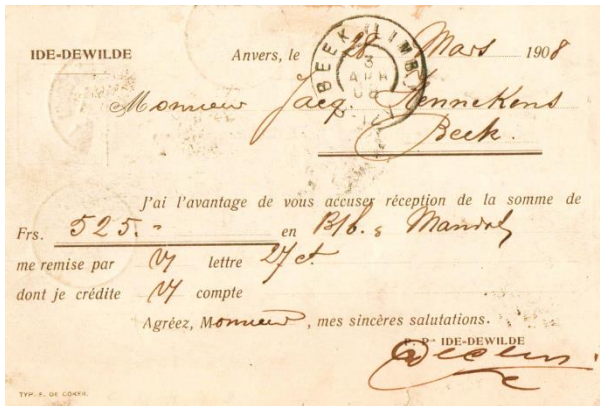 IDE-DEWILDE
Anvers, le 28 Mars 1908
BEEK (LIMB.)
3 APR 08
Monsieur Jacq. Hennekens
Beek.
J'ai l'avantage de vous accuser réception de la somme de
Frs. 525.- en
me remise par lettre 27 ct.
dont je crédite compte
Agréez, Monsieur, mes sincères salutations.
P. P. IDE-DEWILDE
TYP. F. DE COKER.